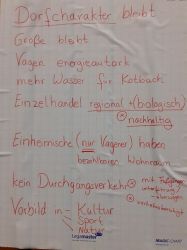 Dorfcharakter bleibt
Größe bleibt
Vagen energieautark
mehr Wasser für Kotbach
Einzelhandel regional + (biologisch)
nachhaltig
Einheimische (nur Vagener) haben
bezahlbaren Wohnraum
kein Durchgangsverkehr
mit Fußgänger
unterführung
Vorbild in - Kultur
Sport
Natur
Legamaster
MAGIC-CHART